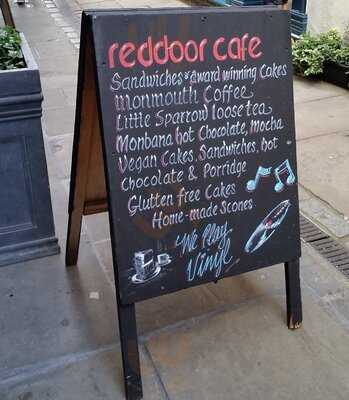 reddoor cafe
Sandwiches & award winning Cakes
Monmouth Coffee
Little Sparrow loose tea
Monbana hot Chocolate, Mocha
Vegan Cakes, Sandwiches, hot
Chocolate & Porridge
Glutten free Cakes
Home-made Scones.
We Play
Vinyl